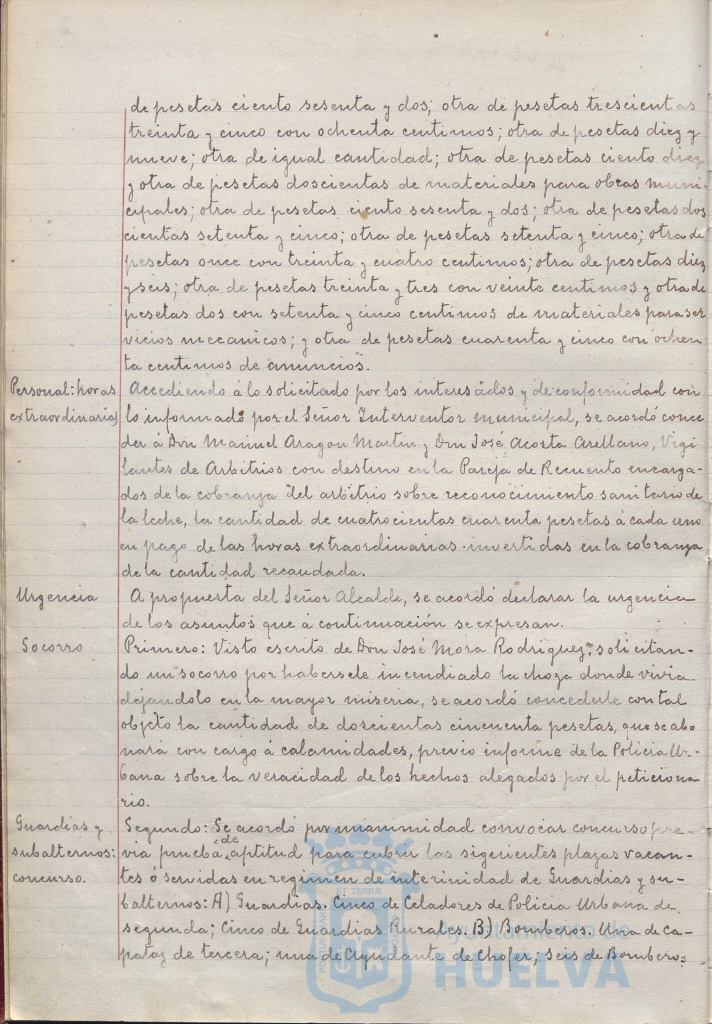 de pesetas ciento sesenta y dos; otra de pesetas trescientas
treinta y cinco con ochenta centimos; otra de pesetas diez y
nueve; otra de igual cantidad; otra de pesetas ciento diez
y otra de pesetas doscientas de materiales para obras muni-
cipales; otra de pesetas ciento sesenta y dos; otra de pesetas dos
cientas setenta y cinco; otra de pesetas setenta y cinco; otra de
pesetas once con treinta y cuatro centimos; otra de pesetas diez
y seis; otra de pesetas treinta y tres con veinte centimos y otra de
pesetas dos con setenta y cinco centimos de materiales para ser
vicios mecanicos; y otra de pesetas cuarenta y cinco con ochen-
ta centimos de anuncios.
Personal: horas
extraordinarias
Accediendo á lo solicitado por los interesados y de conformidad con
lo informado por el Señor Interventor municipal, se acordó conce
der á Don Manuel Aragon Martin y Don José Acosta Arellano, Vigi
lantes de Arbitrios con destino en la Pareja de Recuento encarga-
dos de la cobranza del arbitrio sobre reconocimiento sanitario de
la leche, la cantidad de cuatrocientas cuarenta pesetas á cada uno
en pago de las horas extraordinarias invertidas en la cobranza
de la cantidad recaudada.
Urgencia
A propuesta del Señor Alcalde, se acordó declarar la urgencia
de los asuntos que a continuación se expresan.
Socorro
Primero: Visto escrito de Don José Mora Rodriguez, solicitan-
do un socorro por habersele incendiado la choza donde vivia
dejandolo en la mayor miseria, se acordó concederle con tal
objeto la cantidad de doscientas cincuenta pesetas, que se abo
nará con cargo á calamidades, previo informe de la Policia Ur-
bana sobre la veracidad de los hechos alegados por el peticiona
rio.
Guardias y
subalternos:
concurso.
Segundo: Se acordó por unanimidad convocar concurso pre-
via prueba de aptitud para cubrir las siguientes plazas vacan-
tes ó servidas en regimen de interinidad de Guardias y su-
balternos: A) Guardias. Cinco de Celadores de Policia Urbana de
segunda; Cinco de Guardias Rurales. B) Bomberos. Una de Ca-
pataz de tercera; una de Ayudante de Chofer; seis de Bomberos
Ayuntamiento de
HUELVA